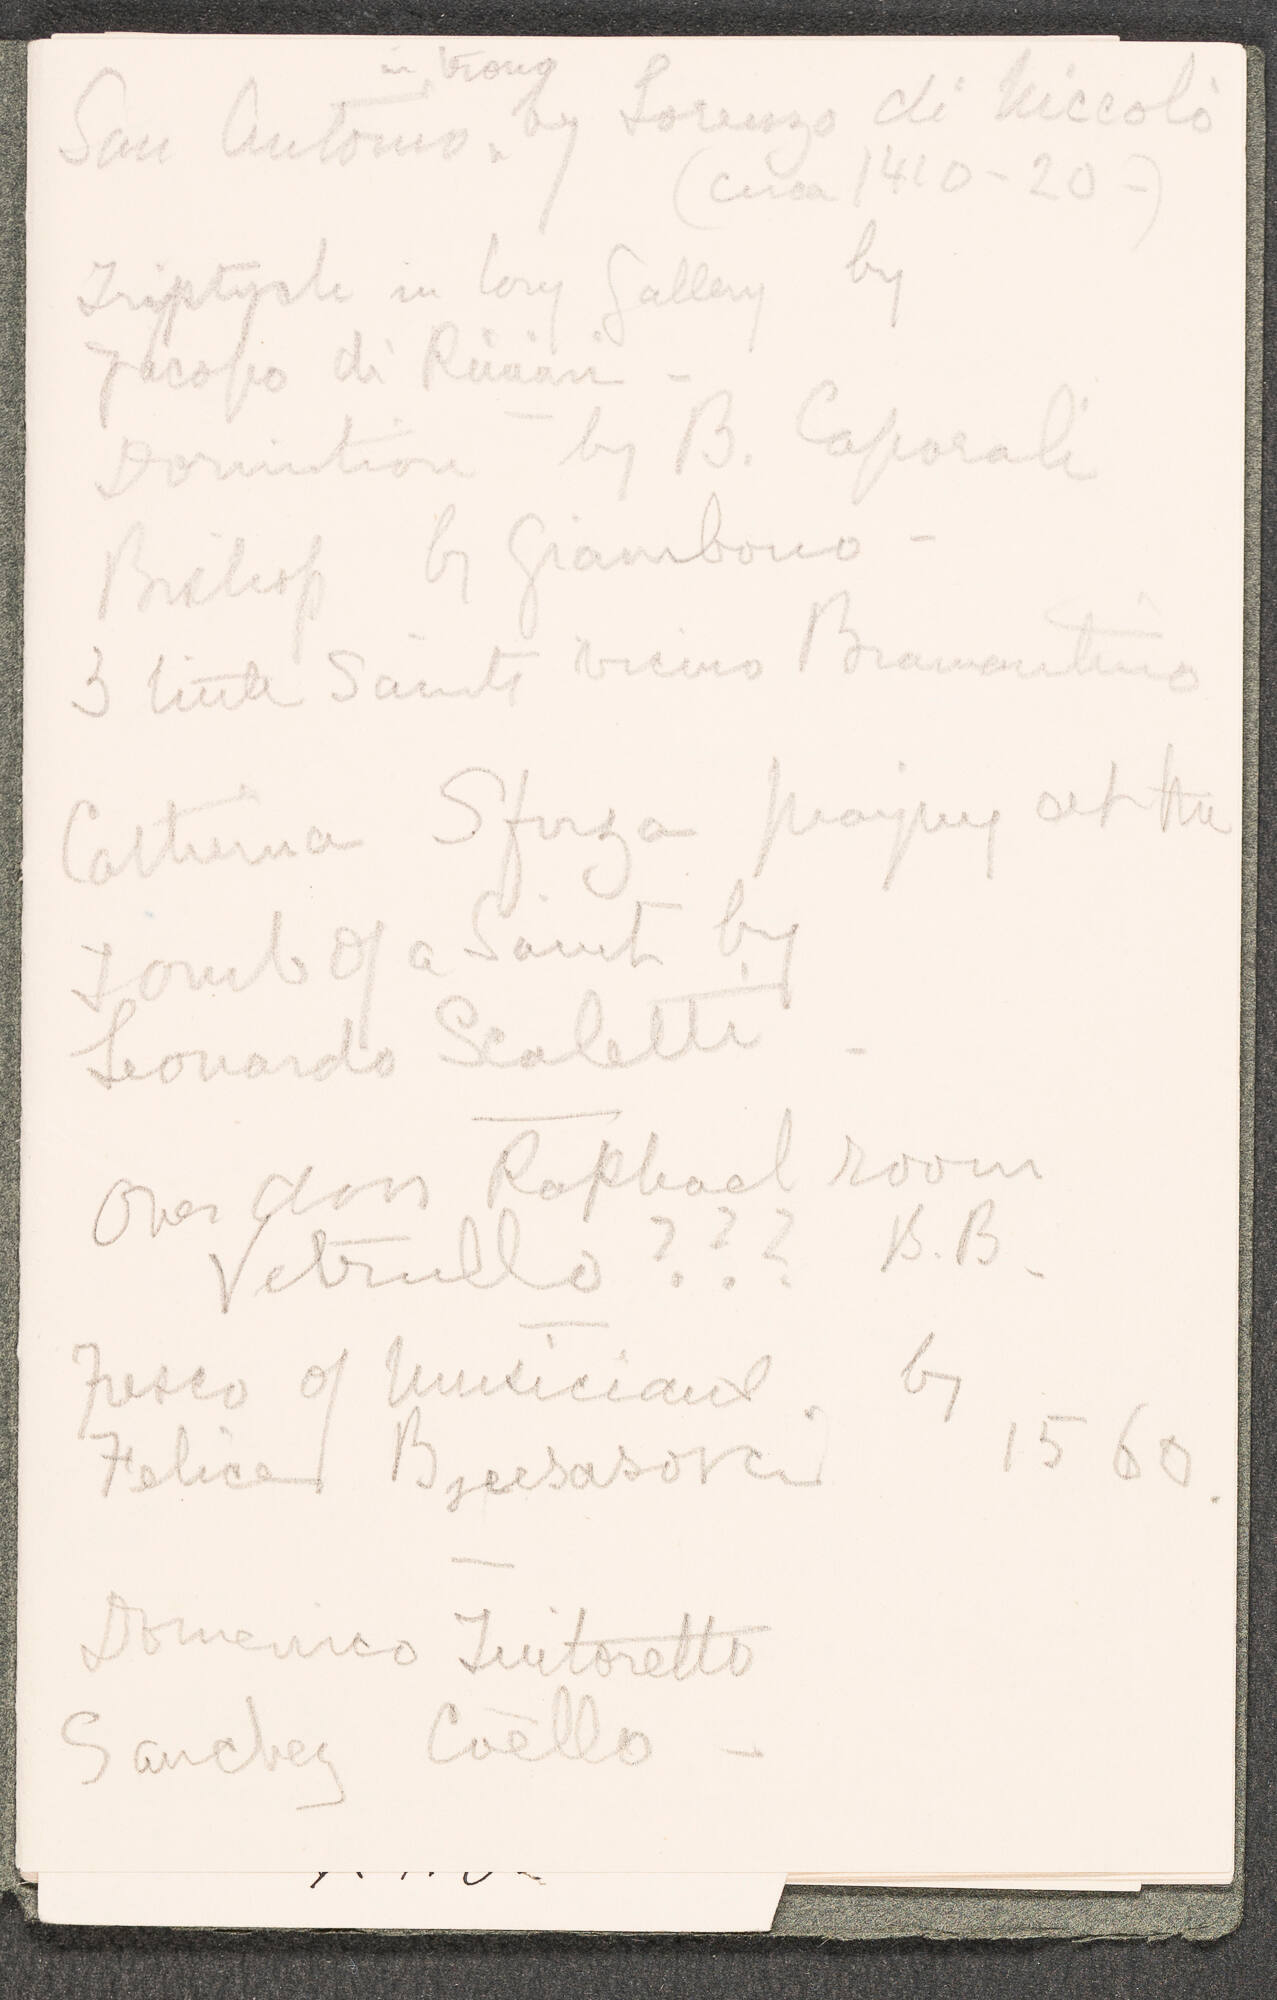 in trono
San Antonio. by Lorenzo di Niccolò
(circa 1410-20-)
Triptych in Long Gallery by
Jacopo di Rimini -
Dormition by B. Caporali
Bishop by Giambono -
3 little Saints vicino Bramantino
Catherina Sforza praying at the
Tomb of a Saint by
Leonardo Scaletti -
Over door Raphael room
Vetrullo ??? B.B.
Fresco of Musicians by
Felice 1560.
Domenico Tintoretto
Sanchez Coëllo -